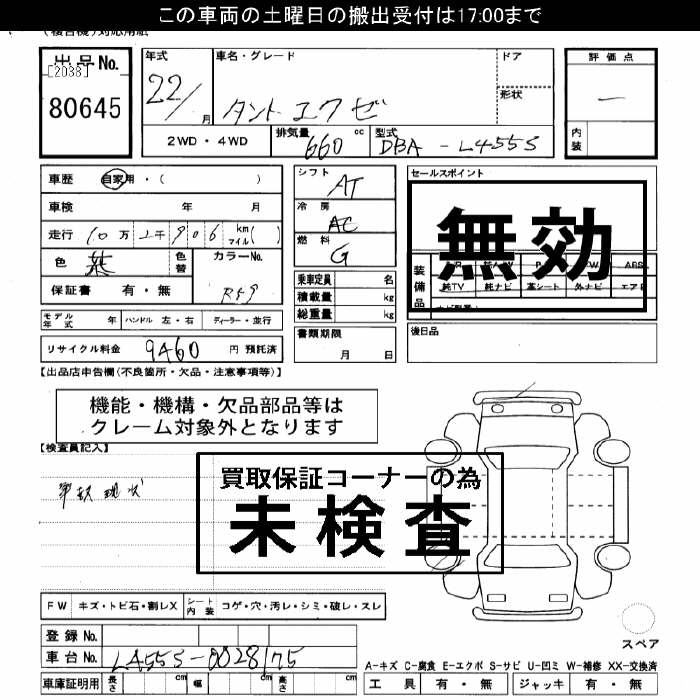 この車両の土曜日の搬出受付は17:00まで
出品No.
[2038]
80645
年式
22/
月
車名・グレード
タントエクゼ
ドア
形状
評価点
—
内装
2WD・4WD
排気量
660
cc
型式
DBA-L455S
車歴
自家用・( )
車検 年 月
走行 10万 2千 906 km マイル( )
色
紫
色替
カラーNo.
R59
保証書 有・無
シフト
AT
冷房
AC
燃料
G
乗車定員 名
積載量 kg
総重量 kg
セールスポイント
無効
装備品
ABS
純TV
純ナビ
革シート
外ナビ
エアB
モデル年式 年
ハンドル 左・右
ディーラー・並行
リサイクル料金 9460 円 預託済
書類期限
月 日
後日品
【出品店申告欄(不良箇所・欠品・注意事項等)】
機能・機構・欠品部品等は
クレーム対象外となります
【検査員記入】
事故現状
買取保証コーナーの為
未検査
FW キズ・トビ石・割レX
シート内装 コゲ・穴・汚レ・シミ・破レ・スレ
登録No.
車台No. LA55S-0028175
車庫証明用 長さ cm 幅 cm 高さ cm
スペア
A-キズ C-腐食 E-エクボ S-サビ U-凹ミ W-補修 XX-交換済
工具 有・無 ジャッキ 有・無